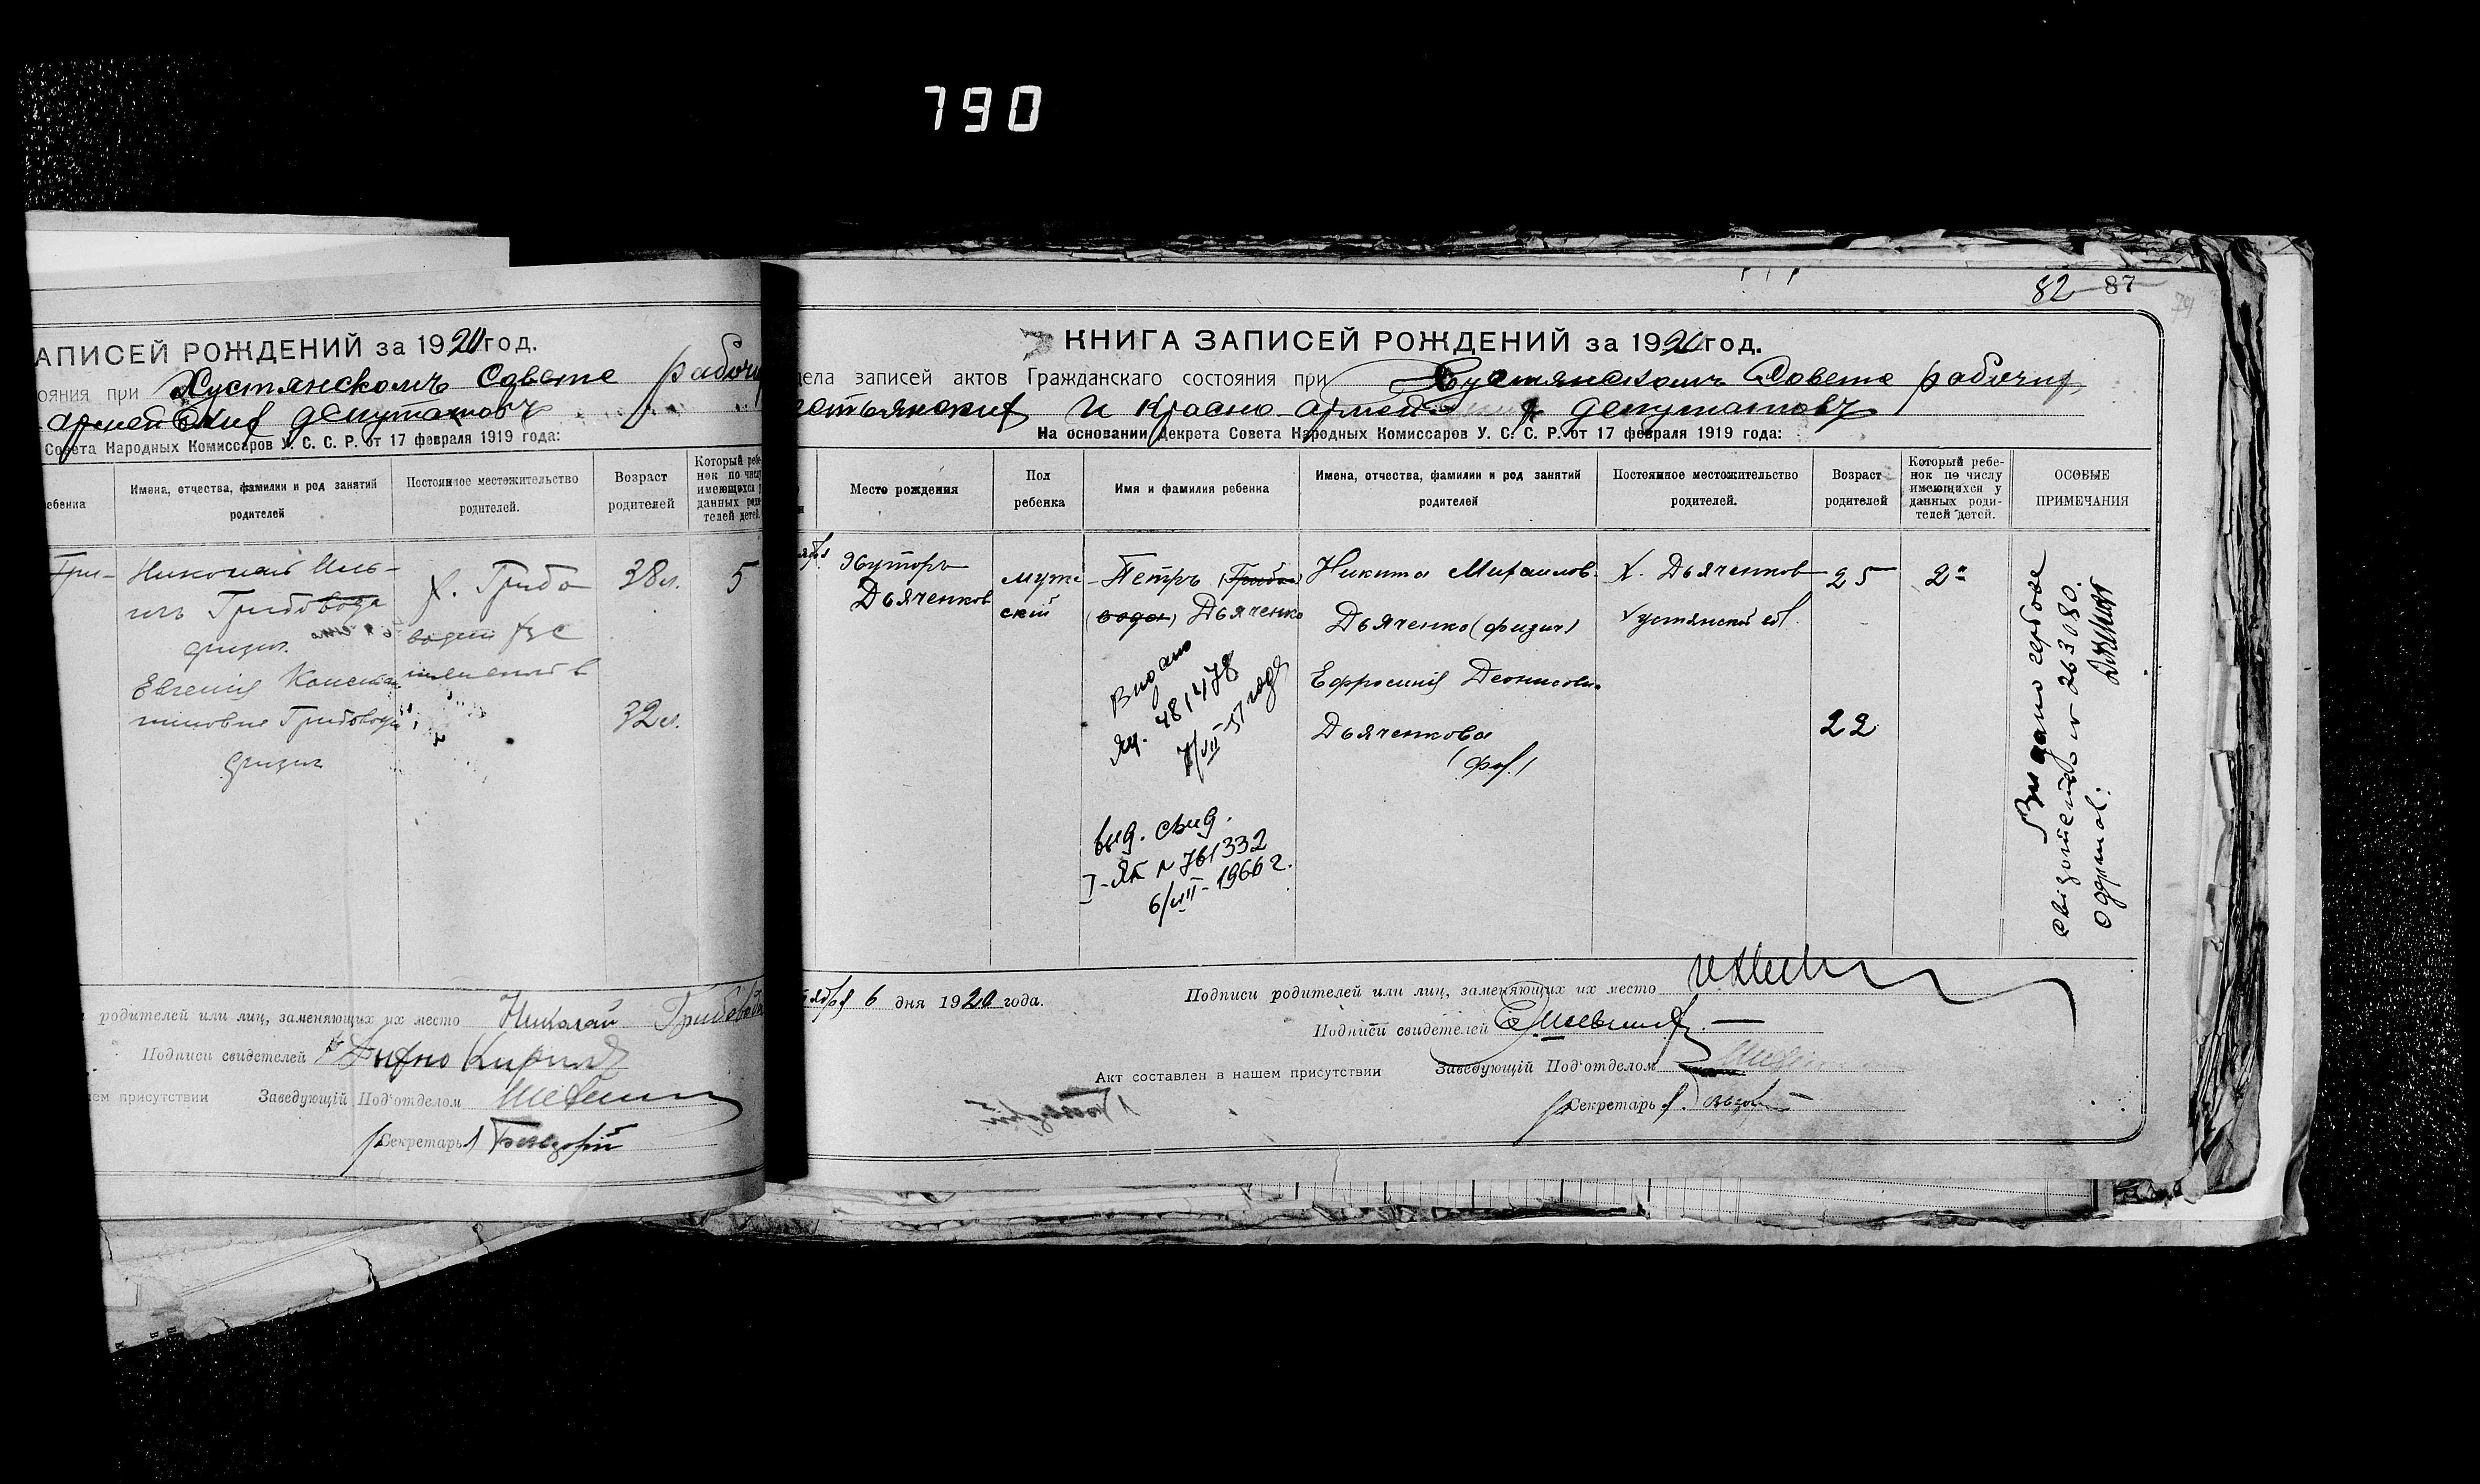 790
АПИСЕЙ РОЖДЕНИЙ за 1920 год.
ояния при Хустянскомъ Совете рабочи
армейских депутатовъ
Совета Народных Комиссаров У. С. С. Р. от 17 февраля 1919 года:
ебенка
Имена, отчества, фамилии и род занятий родителей
Постоянное местожительство родителей.
Возраст родителей
Который ребе-
нок по числу
имеющихся у
данных роди-
телей детей.
Гри-
Николай Иль-
ичъ Грибовода
физич.
Евгения Констан
тиновне Грибовода
физич
х. Грибо
38 л.
32 л.
5
родителей или лиц, заменяющих их место Николай Грибовода
Подписи свидетелей Кирилъ
ем присутствии Заведующій Под'отделом
Секретарь
82 87
КНИГА ЗАПИСЕЙ РОЖДЕНИЙ за 1920 год.
дела записей актов Гражданскаго состояния при Хустянскомъ Совете рабочих,
естьянских и красно-армейских депутатовъ
На основании Декрета Совета Народных Комиссаров У. С. С. Р. от 17 февраля 1919 года:
Место рождения
Пол
ребенка
Имя и фамилия ребенка
Имена, отчества, фамилии и род занятий
родителей
Постоянное местожительство
родителей.
Возраст
родителей
Который ребе-
нок по числу
имеющихся у
данных роди-
телей детей.
ОСОБЫЕ
ПРИМЕЧАНИЯ
Хуторъ
Дьяченков
муж-
ский
Петръ (Грибо
вода) Дьяченко
Никита Михаилов.
Дьяченко (физич)
Ефросиния Деонисовн.
Дьяченкова
(физ.)
Х. Дьяченков
Хустянской вол.
25
22
2й
Видано
ЯЦ. 481478
7/VII-51 года
выд. свид.
I-ЯК № 761332
6/VII-1966 г.
Видано гербове
свідоцтво № 263080.
6 дня 1920 года.
Подписи родителей или лиц, заменяющих их место
Подписи свидетелей
Акт составлен в нашем присутствии Заведующій Под'отделом
Секретарь